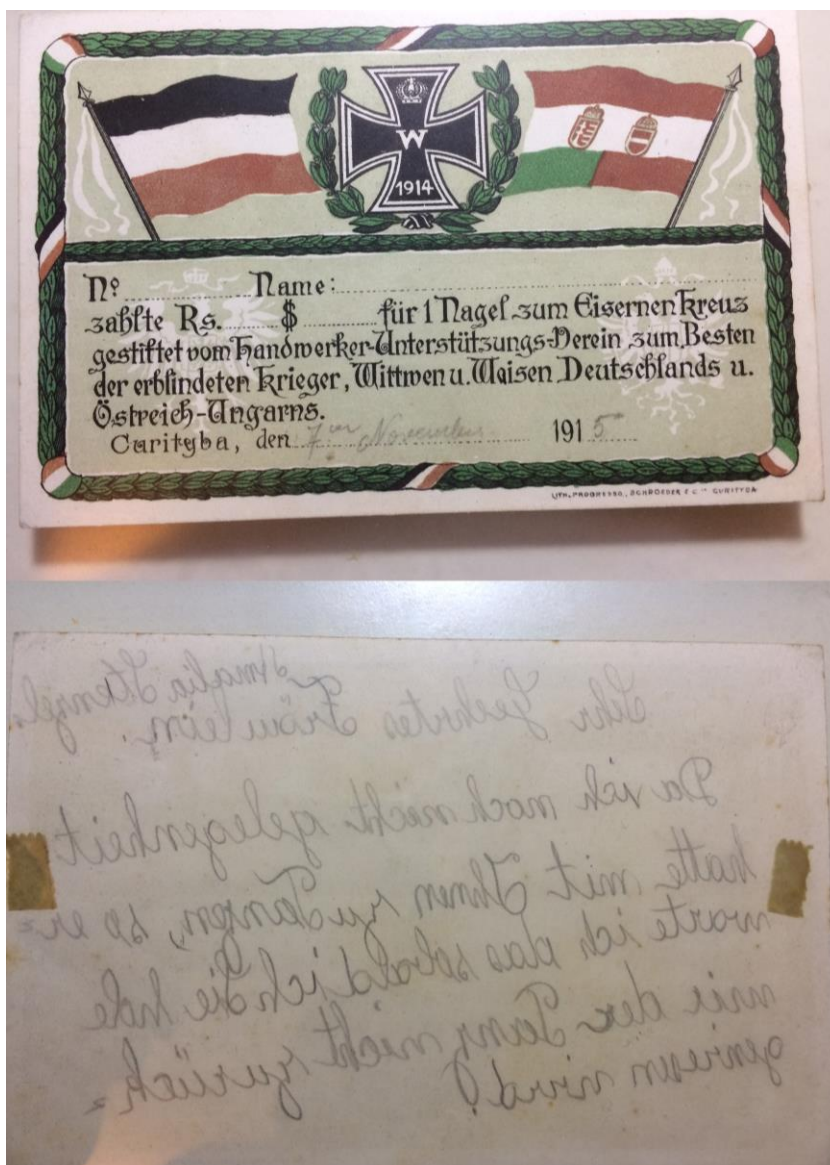 W
1914
Nº ............ Name: ............
zahlte Rs. ...... $ ............ für 1 Nagel zum Eisernen Kreuz
gestiftet vom Handwerker-Unterstützungs-Verein zum Besten
der erblindeten Krieger, Wittwen u. Waisen Deutschlands u.
Östreich-Ungarns.
Curityba, den 7ten November 1915
LITH. PROGRESSO, SCHROEDER & Cia CURITYBA
Amalia Stenzel.
Sehr Geehrtes Fräulein.
Da ich noch nicht gelegenheit
hatte mit Ihnen zu Tanzen, so er=
warte ich das sobald ich Sie hole
mir der Tanz nicht zurück=
gewiesen wird!